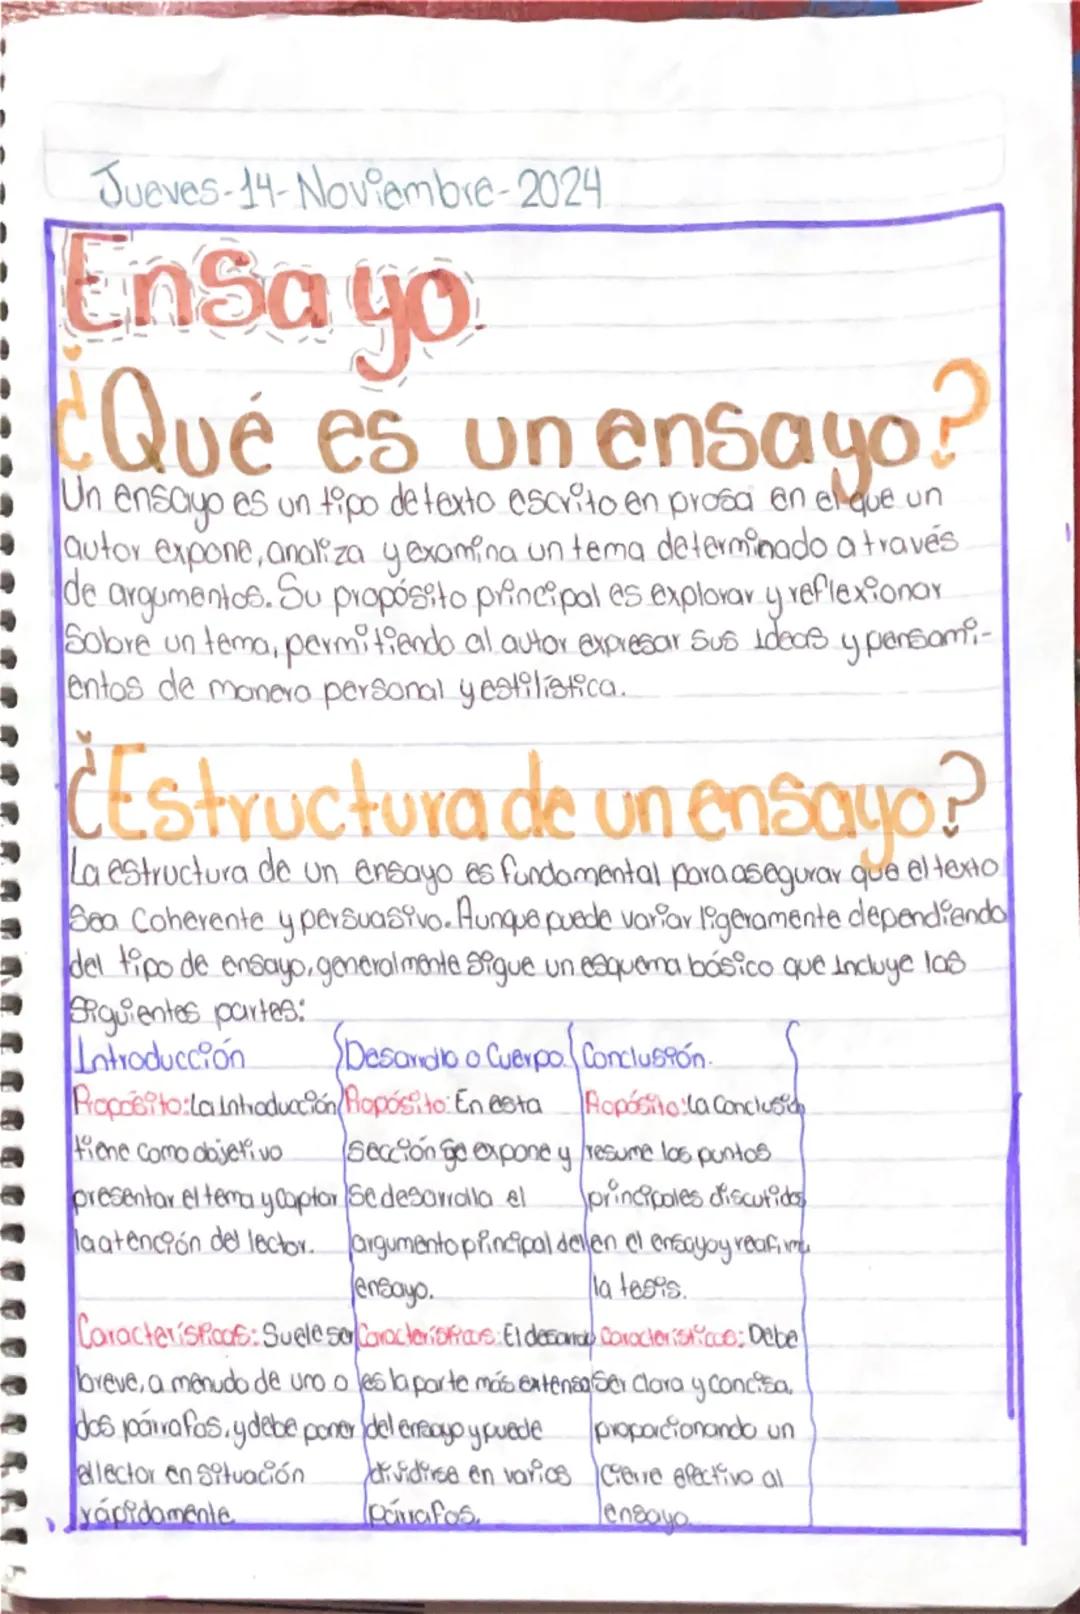 Jueves-14-Noviembre-2024
Ensayo.
¿Qué es un ensayo?
Un ensayo es un tipo de texto escrito en prosa en el que un
autor expone, analiza y examina un tema determinado a través
de argumentos. Su propósito principal es explorar y reflexionar
Sobre un tema, permitiendo al autor expresar sus ideas y pensami-
entos de manera personal y estilística.
¿Estructura de un ensayo?
La estructura de un ensayo es fundamental para asegurar que el texto
Sea Coherente y persuasivo. Aunque puede variar ligeramente dependiendo
del tipo de ensayo, generalmente sigue un esquema básico que incluye las
Siguientes partes:
Introducción
Propósito: La introducción
tiene como objetivo
presentar el tema y captar
la atención del lector.
Características: Suele ser
breve, a menudo de uno o
dos párrafos, y debe poner
al lector en situación
rápidamente.
Desarrollo o Cuerpo.
Propósito: En esta
sección se expone y
se desarrolla el
argumento principal del
ensayo.
Características: El desarrollo
es la parte más extensa
del ensayo y puede
dividirse en varios
párrafos.
Conclusión.
Propósito: La Conclusión
resume los puntos
principales discutidos
en el ensayo y reafirma
la tesis.
Características: Debe
Ser clara y concisa,
proporcionando un
cierre efectivo al
ensayo.